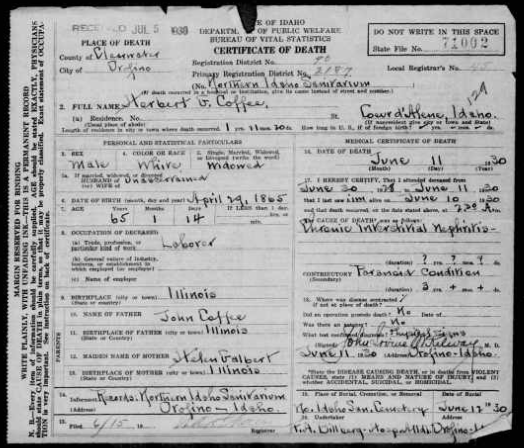 RECEIVED JUL 5 1930
STATE OF IDAHO
DEPARTMENT OF PUBLIC WELFARE
BUREAU OF VITAL STATISTICS
CERTIFICATE OF DEATH
DO NOT WRITE IN THIS SPACE
State File No. 71002
PLACE OF DEATH
County of Clearwater
City of Orofino
Registration District No. 90
Primary Registration District No. 2187
Local Registrar's No.
(No. Northern Idaho Sanitarium
(If death occurred in a hospital or institution, give its name instead of street and number.)
2. FULL NAME Herbert V. Coffee
(a) Residence. No. St. Coeur d'Alene, Idaho.
(Usual place of abode) (If nonresident give city or town and State)
Length of residence in city or town where death occurred 1 yrs. 11 mos. 20 ds. How long in U. S., if of foreign birth? yrs. mos. ds.
PERSONAL AND STATISTICAL PARTICULARS
3. SEX Male
4. COLOR OR RACE White
5. Single, Married, Widowed, or Divorced Widowed
5a. If married, widowed, or divorced HUSBAND of (or) WIFE of
6. DATE OF BIRTH (month, day, and year) April 29, 1865
7. AGE 65 1 14 If LESS than 1 day, hrs. or min.
8. OCCUPATION OF DECEASED
(a) Trade, profession, or particular kind of work Laborer
(b) General nature of industry, business, or establishment in which employed (or employer)
(c) Name of employer
9. BIRTHPLACE (city or town) Illinois
(State or country)
10. NAME OF FATHER John Coffee
11. BIRTHPLACE OF FATHER (city or town) Illinois
(State or country)
12. MAIDEN NAME OF MOTHER Helen Talbert
13. BIRTHPLACE OF MOTHER (city or town) Illinois
(State or country)
PARENTS
14. Informant Records: Northern Idaho Sanitarium
(Address) Orofino - Idaho.
15. Filed 6/15
MEDICAL CERTIFICATE OF DEATH
16. DATE OF DEATH
June 11 1930
17. I HEREBY CERTIFY, That I attended deceased from
June 30 1928 to June 11 1930
that I last saw him alive on June 10 1930
and that death occurred, on the date stated above, at 2:30 A.m.
The CAUSE OF DEATH was as follows:
Chronic Interstitial Nephritis
(duration) ? yrs. ? mos. ? ds.
CONTRIBUTORY Paranoid Condition
(Secondary)
(duration) 3 yrs. + mos. + ds.
18. Where was disease contracted ?
Did an operation precede death? No
Was there an autopsy? No
What test confirmed diagnosis? Physical Signs
(Signed) M. D.
June 11 1930 (Address) Orofino-Idaho.
the DISEASE CAUSING DEATH, or in deaths from VIOLENT CAUSES, state (1) MEANS AND NATURE OF INJURY, and (2) whether ACCIDENTAL, SUICIDAL, or HOMICIDAL.
No. Idaho San. Cemetery June 12th 1930
20. Undertaker (Address)
Orofino, Idaho.
WRITE PLAINLY, WITH UNFADING INK—THIS IS A PERMANENT RECORD
MARGIN RESERVED FOR BINDING
N. B.—Every item of information should be carefully supplied. AGE should be stated EXACTLY. PHYSICIANS should state CAUSE OF DEATH in plain terms, so that it may be properly classified. Exact statement of OCCUPATION is very important. See instructions on back of certificate.